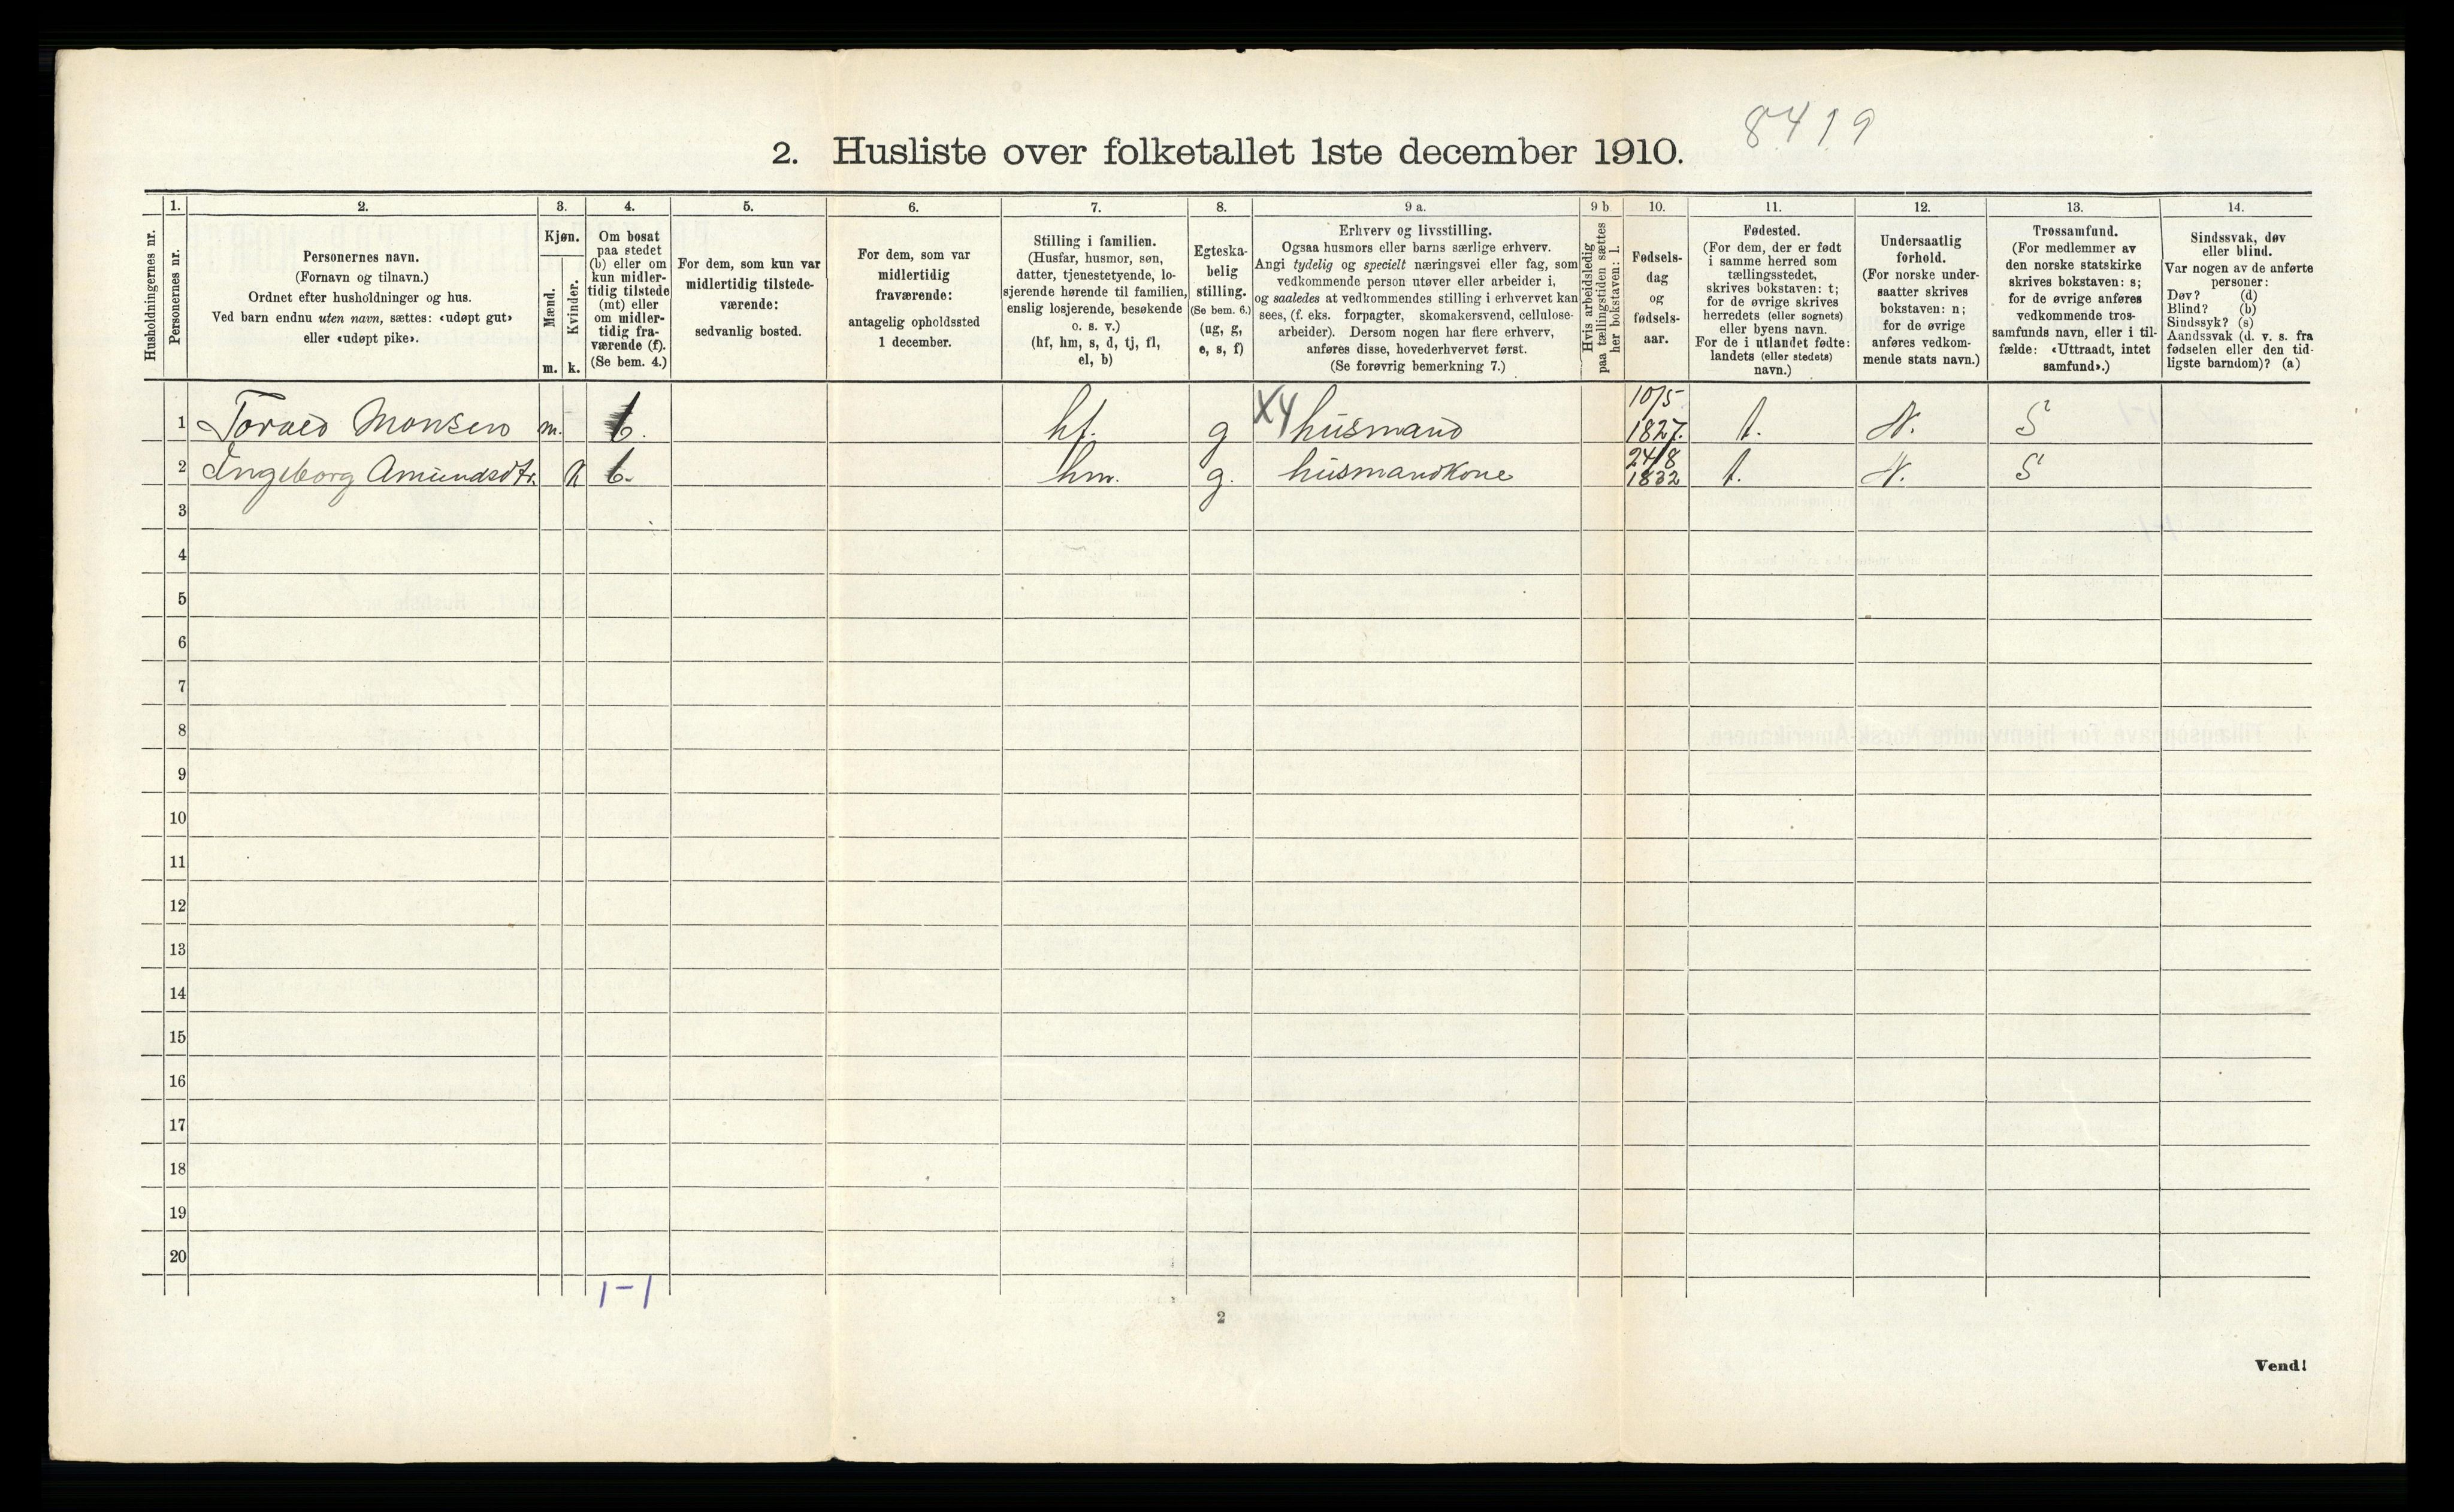 8419
2. Husliste over folketallet 1ste december 1910.
1. 2. 3. 4. 5. 6. 7. 8. 9 a. 9 b 10. 11. 12. 13. 14.
Husholdningernes nr.
Personernes nr.
Personernes navn.
(Fornavn og tilnavn.)
Ordnet efter husholdninger og hus.
Ved barn endnu uten navn, sættes: «udøpt gut»
eller «udøpt pike».
Kjøn.
Mænd.
Kvinder.
m. k.
Om bosat
paa stedet
(b) eller om
kun midler-
tidig tilstede
(mt) eller
om midler-
tidig fra-
værende (f).
(Se bem. 4.)
For dem, som kun var
midlertidig tilstede-
værende:
sedvanlig bosted.
For dem, som var
midlertidig
fraværende:
antagelig opholdssted
1 december.
Stilling i familien.
(Husfar, husmor, søn,
datter, tjenestetyende, lo-
sjerende hørende til familien,
enslig losjerende, besøkende
o. s. v.)
(hf, hm, s, d, tj, fl,
el, b)
Egteska-
belig
stilling.
(Se bem. 6.)
(ug, g,
e, s, f)
Erhverv og livsstilling.
Ogsaa husmors eller barns særlige erhverv.
Angi tydelig og specielt næringsvei eller fag, som
vedkommende person utøver eller arbeider i,
og saaledes at vedkommendes stilling i erhvervet kan
sees, (f. eks. forpagter, skomakersvend, cellulose-
arbeider). Dersom nogen har flere erhverv,
anføres disse, hovederhvervet først.
(Se forøvrig bemerkning 7.)
Hvis arbeidsledig
paa tællingstiden sættes
her bokstaven: l.
Fødsels-
dag
og
fødsels-
aar.
Fødested.
(For dem, der er født
i samme herred som
tællingsstedet,
skrives bokstaven: t;
for de øvrige skrives
herredets (eller sognets)
eller byens navn.
For de i utlandet fødte:
landets (eller stedets)
navn.)
Undersaatlig
forhold.
(For norske under-
saatter skrives
bokstaven: n;
for de øvrige
anføres vedkom-
mende stats navn.)
Trossamfund.
(For medlemmer av
den norske statskirke
skrives bokstaven: s;
for de øvrige anføres
vedkommende tros-
samfunds navn, eller i til-
fælde: «Uttraadt, intet
samfund».)
Sindssvak, døv
eller blind.
Var nogen av de anførte
personer:
Døv? (d)
Blind? (b)
Sindssyk? (s)
Aandssvak (d. v. s. fra
fødselen eller den tid-
ligste barndom)? (a)
10/5
1 Monsen m. b. hf. g X4 husmand 1827. t. N. S
24/8
2 Ingeborg Amundsdtr. k b. hm. g. husmandkone 1832 t. N. S
3
4
5
6
7
8
9
10
11
12
13
14
15
16
17
18
19
20
1-1
2
Vend!